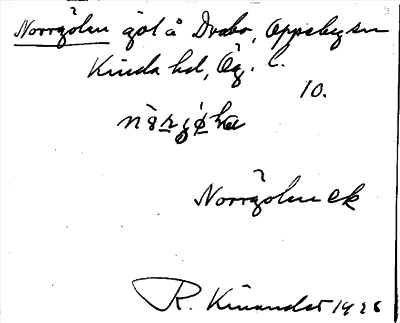 Norrgölen göl å Drabo, Oppeby sn
Kinda hd, Ög. l.
10.
Norrgölen ek
R. Kinander 1926